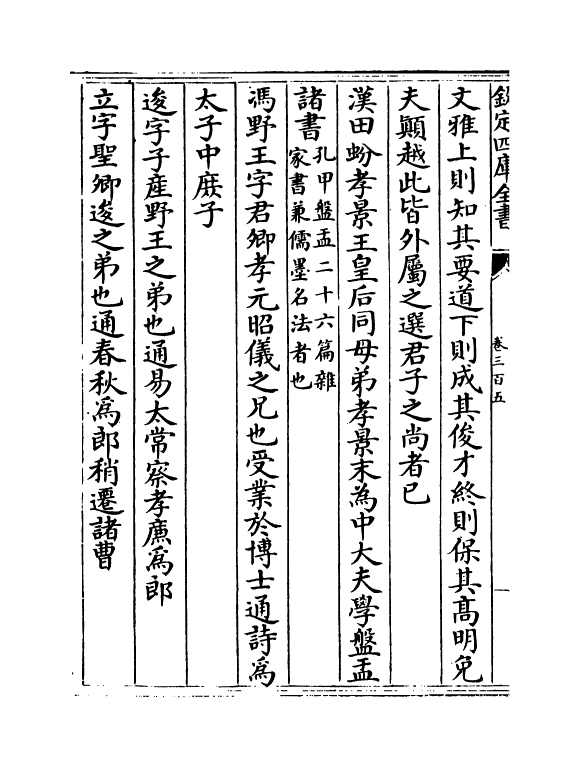 欽定四庫全書
卷三百五
文雅上則知其要道下則成其俊才終則保其髙明免
夫顛越此皆外屬之選君子之尚者已
漢田蚡孝景王皇后同母弟孝景末為中大夫學盤盂
諸書孔甲盤盂二十六篇雜
家書兼儒墨名法者也
馮野王字君卿孝元昭儀之兄也受業於博士通詩爲
太子中庻子
逡字子産野王之弟也通易太常察孝廉爲郎
立字聖卿逡之弟也通春秋爲郎稍遷諸曹